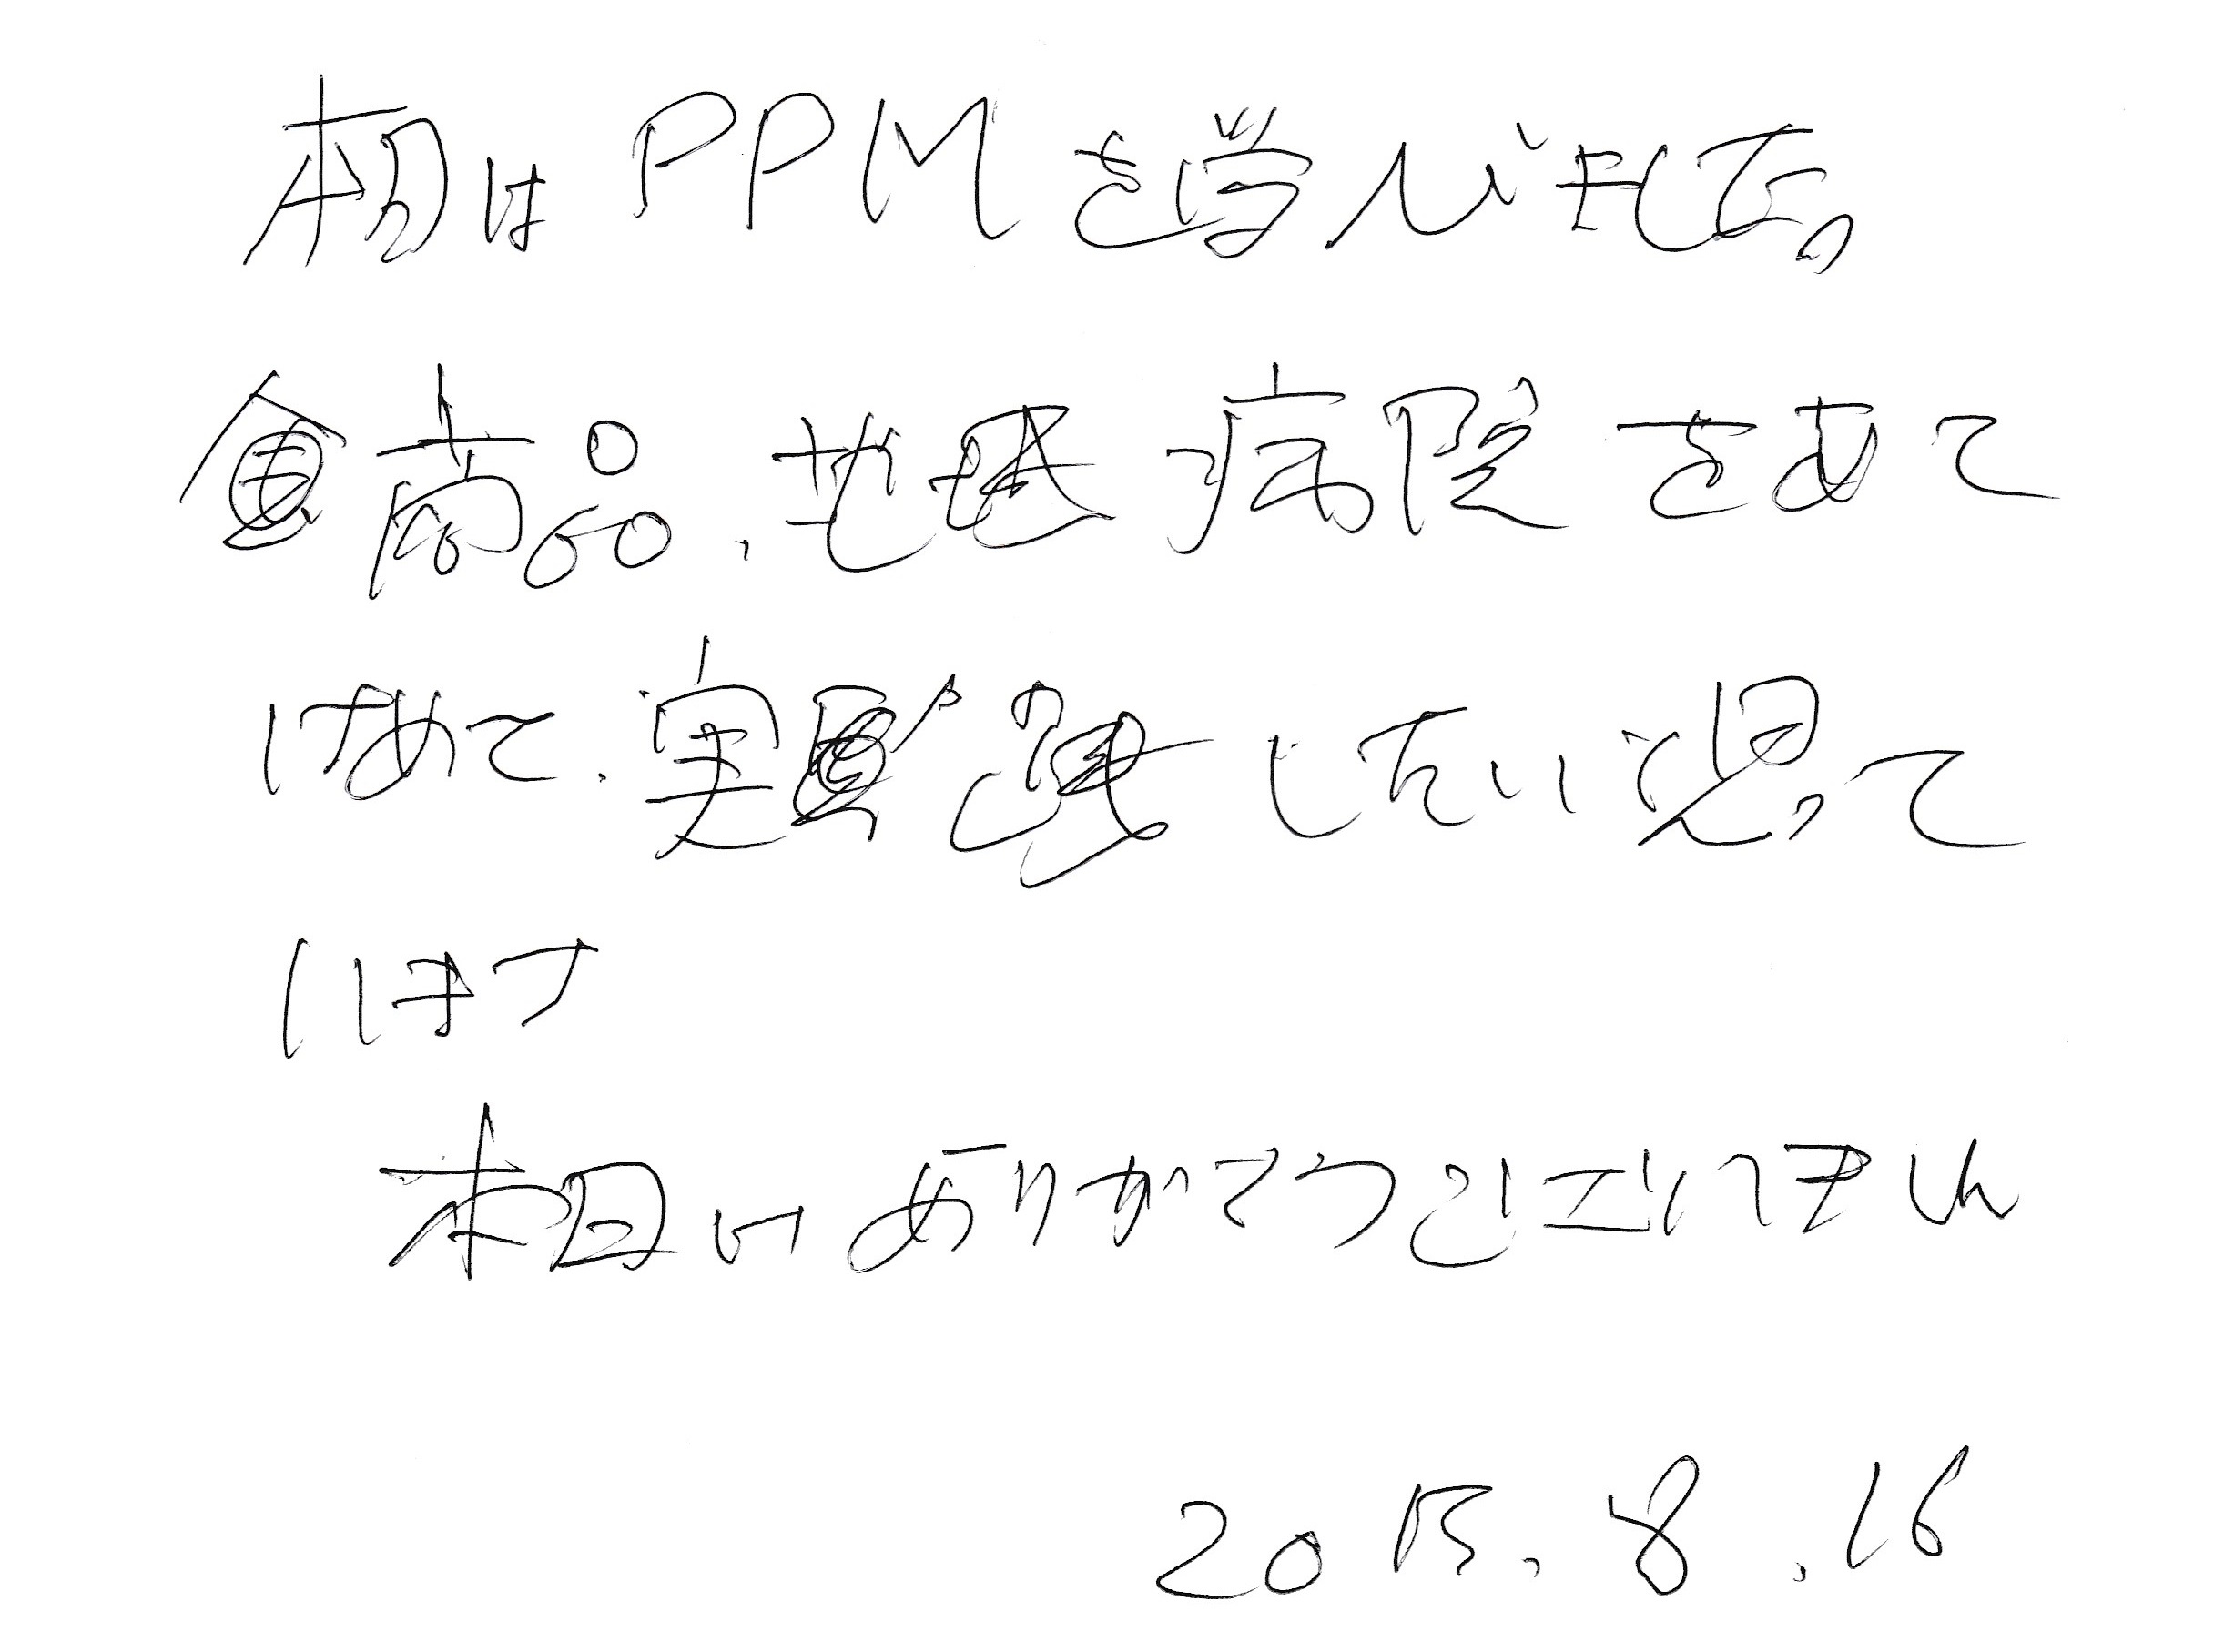 本日は PPMを学びました。
商品、地域 病院をあて
はめて、実践したいと思って
います
本日はありがとうございました
2015.8.16